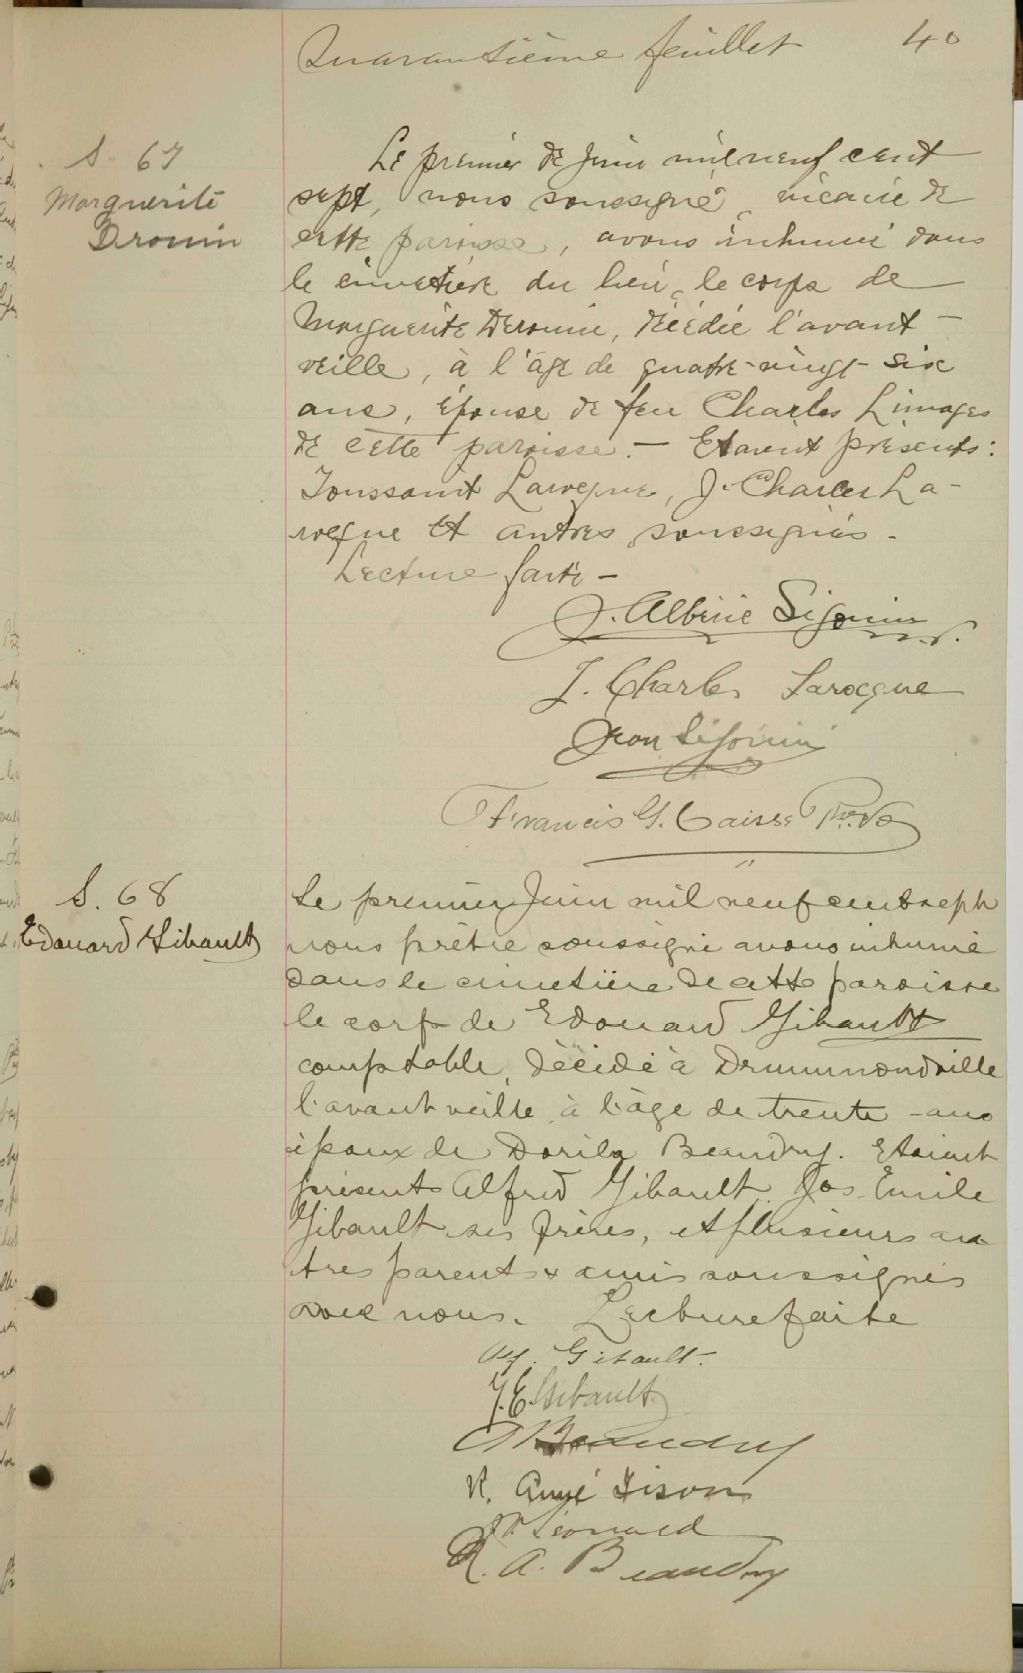 Quarantième feuillet 40
S. 67
Marguerite
Drouin
Le premier de juin mil neuf cent
sept, nous soussigné, vicaire de
cette paroisse, avons inhumé dans
le cimetière du lieu, le corps de
Marguerite Derouin, décédée l'avant-
veille, à l'âge de quatre-vingt-six
ans, épouse de feu Charles Limoges
de cette paroisse. — Etaient présents:
Toussaint Larocque, J. Charles La-
rocque et autres soussignés.
Lecture faite —
J. Albéric Sigouin
J. Charles Larocque
Jean Sigouin
Francis G. Caisse Ptre. V.
S. 68
Edouard Gibault
Le premier Juin mil neuf cent sept
nous prêtre soussigné avons inhumé
dans le cimetière de cette paroisse
le corps de Edouard Gibault
comptable, décédé à Drummondville
l'avant veille, à l'âge de trente ans
époux de Dorila Beaudry. Etaient
présents Alfred Gibault, Jos. Emile
Gibault ses frères, et plusieurs au
tres parents & amis soussignés
avec nous. Lecture faite
Alf. Gibault.
J. E. Gibault
Beaudry
R. Aimé Tison
Léonard
R. A. Beaudry